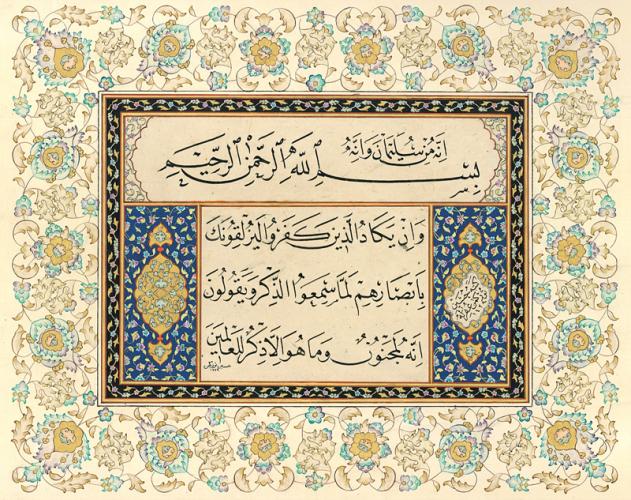 انه من سليمان وانه
بسم الله الرحمن الرحيم
وان يكاد الذين كفروا ليزلقونك
بابصارهم لما سمعوا الذكر ويقولون
انه لمجنون وما هو الا ذكر للعالمين